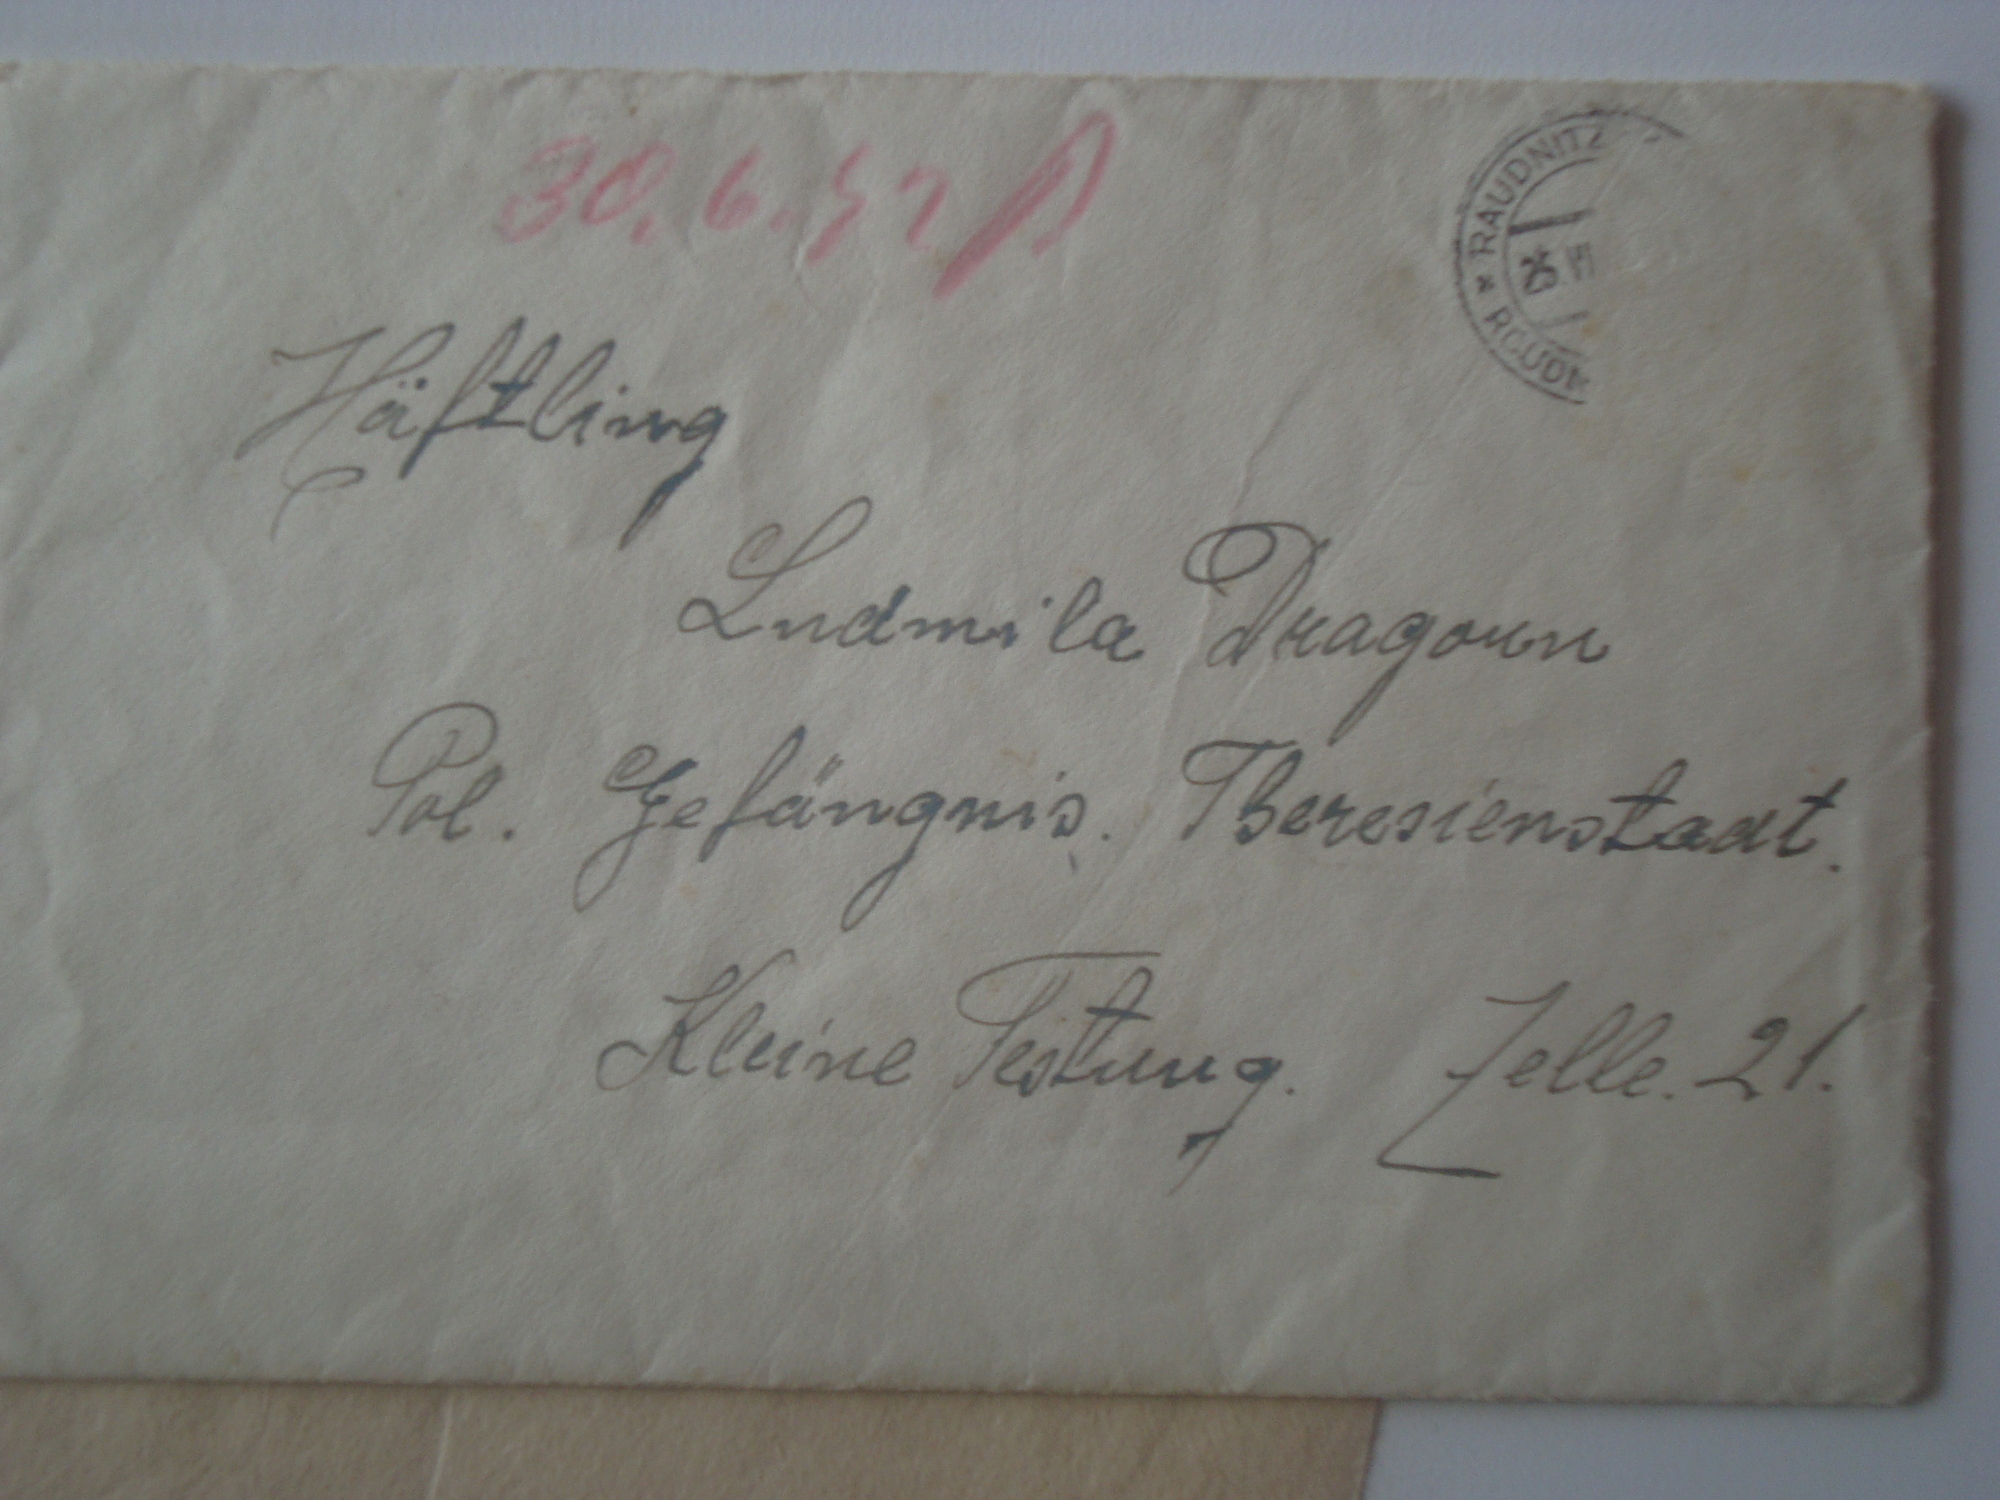 30. 6. 42
RAUDNITZ
25 VI
ROUDN
Häftling
Ludmila Dragoun
Pol. Gefängnis. Theresienstadt.
Kleine Festung. Zelle. 21.